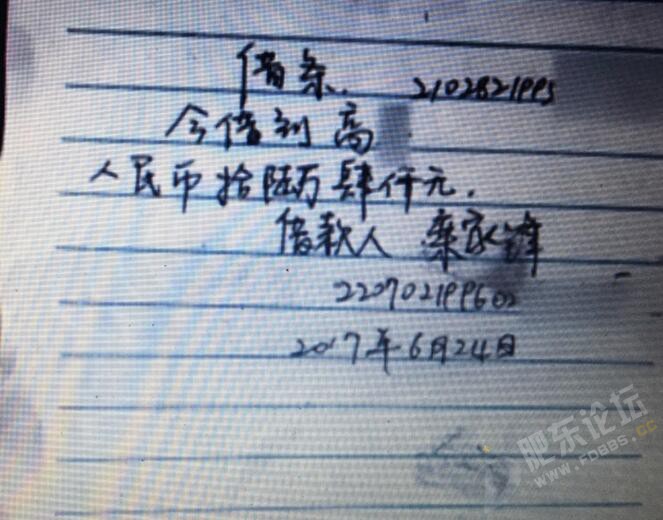 借条 2102821995
今借到 高
人民币拾陆万肆仟元.
借款人 栾家锋
220702199602
2017年6月24日
肥东论坛
WWW.FDBBS.CC